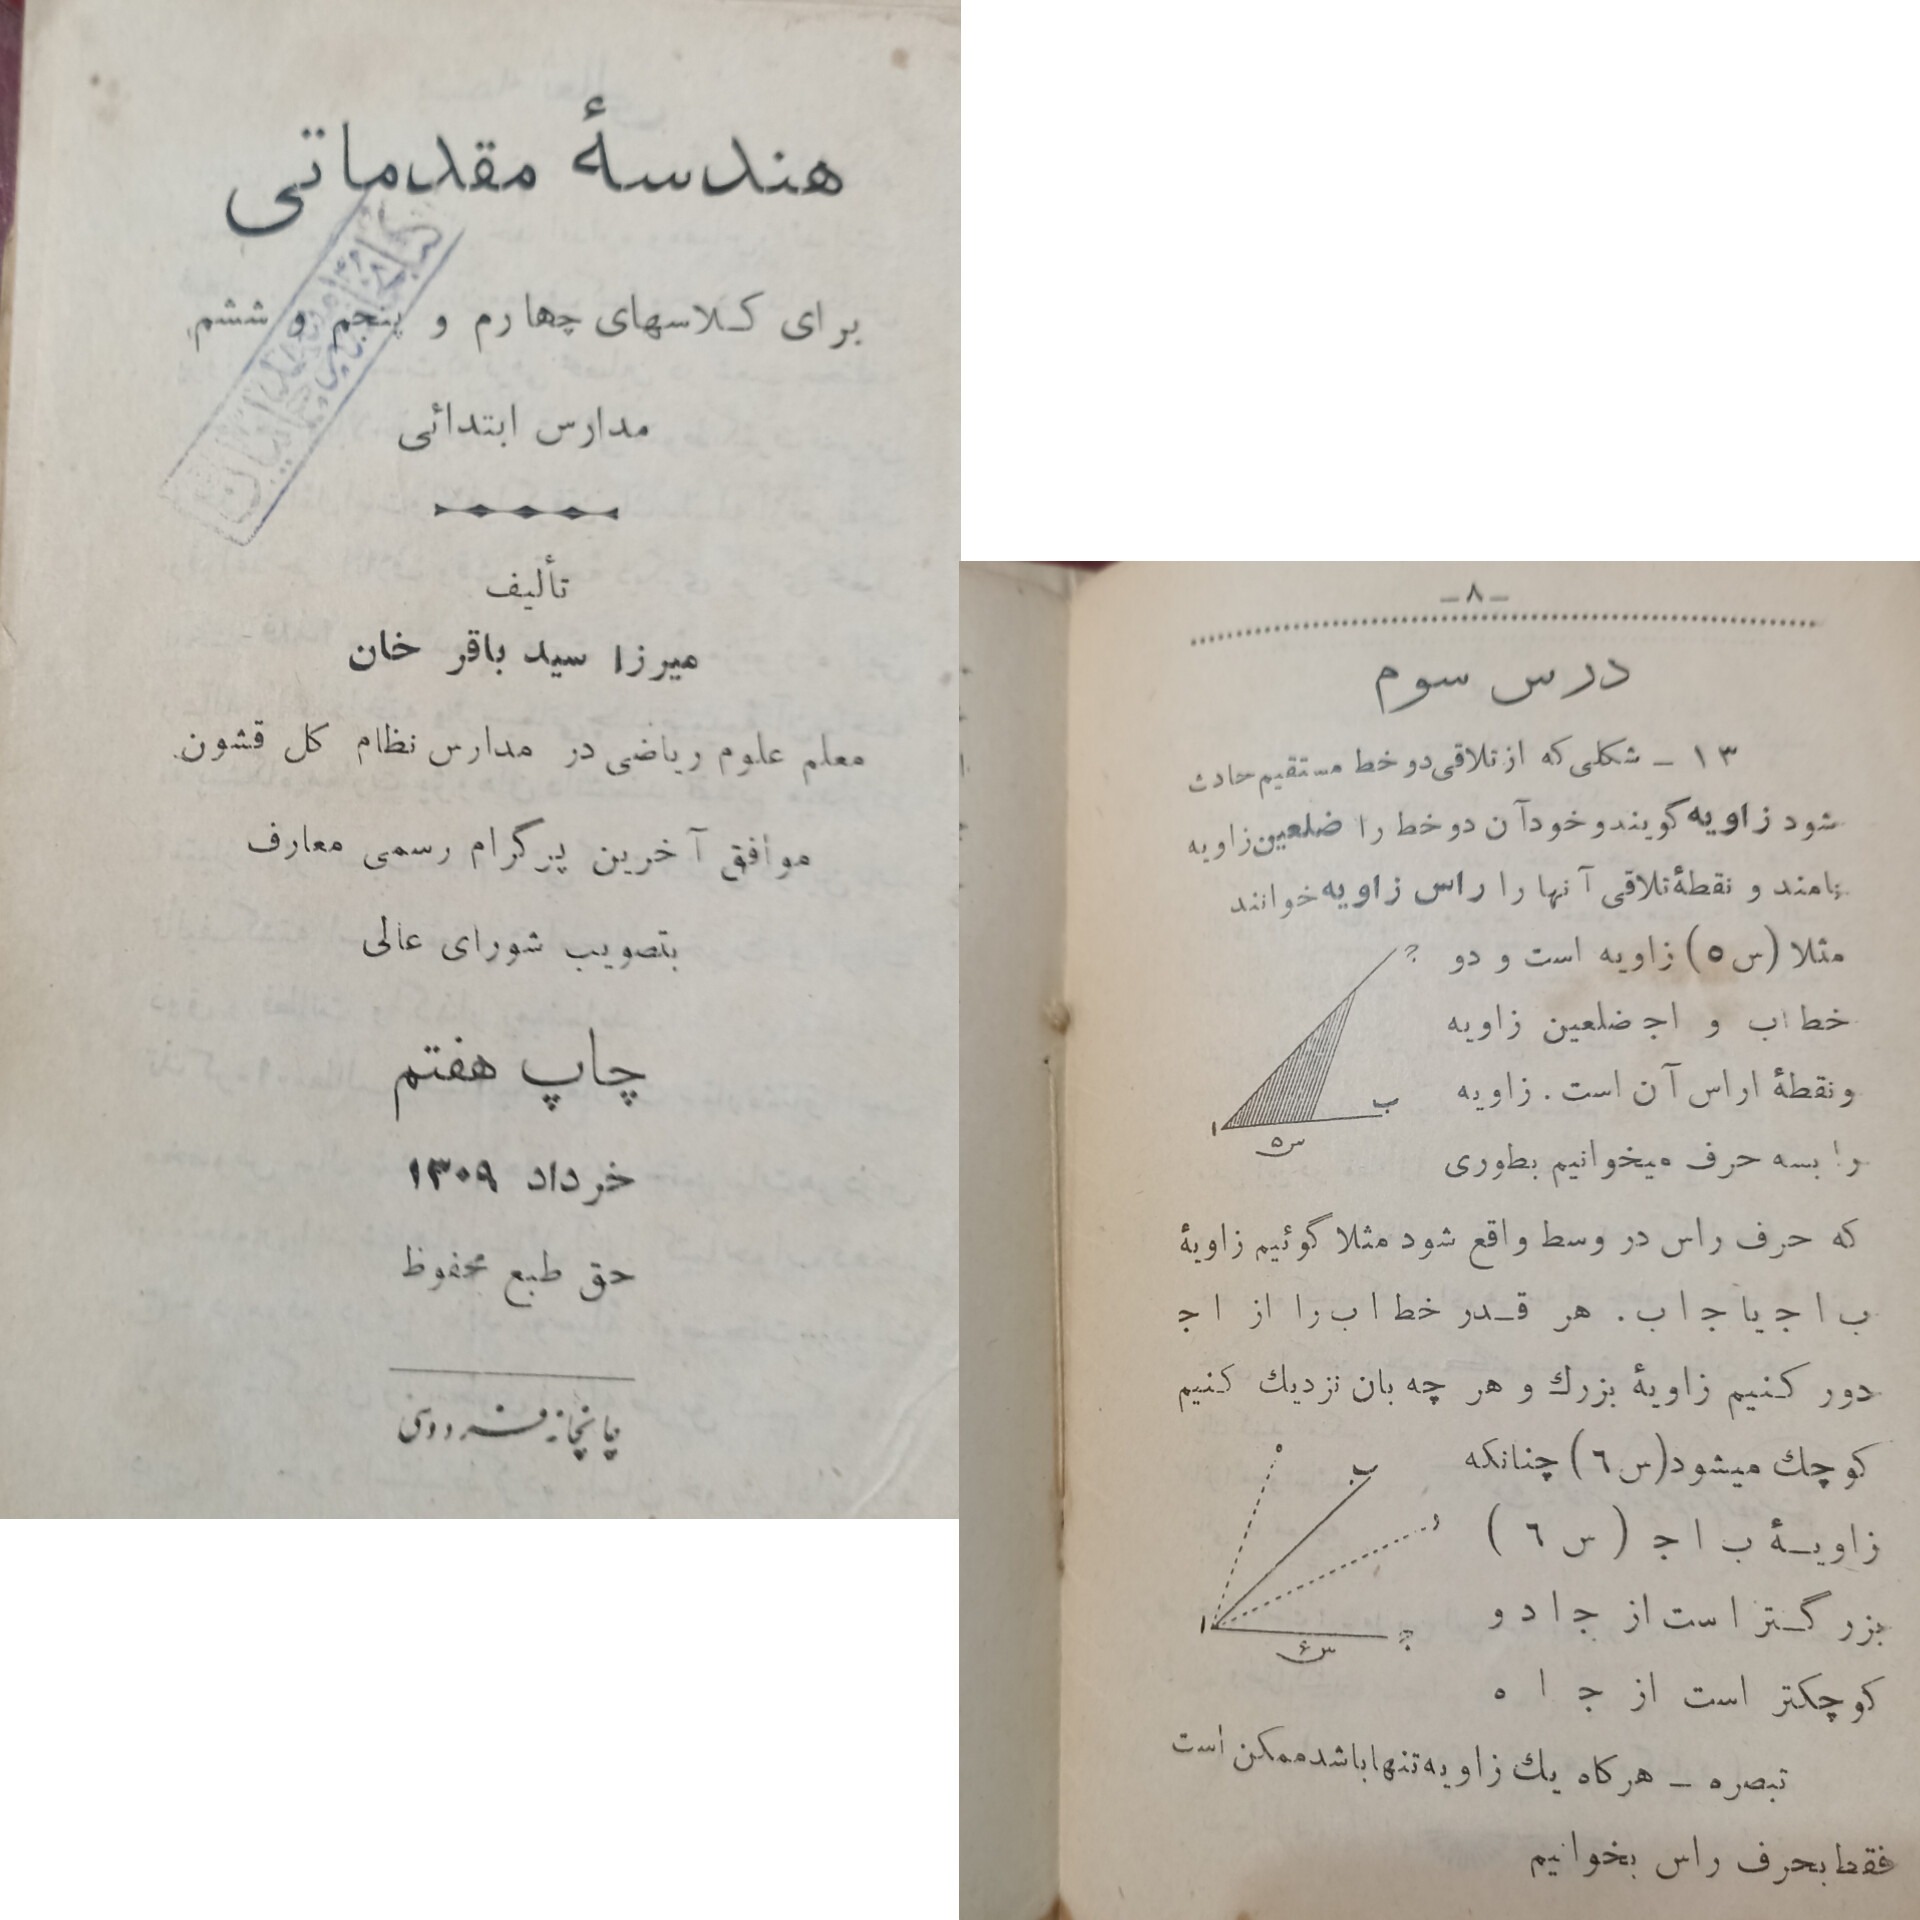 هندسهٔ مقدماتی
برای کلاسهای چهارم و پنجم و ششم
مدارس ابتدائی
تألیف
میرزا سید باقر خان
معلم علوم ریاضی در مدارس نظام کل قشون
موافق آخرین پرگرام رسمی معارف
بتصویب شورای عالی
چاپ هفتم
خرداد ۱۳۰۹
حق طبع محفوظ
چاپخانه فردوسی
ـ ۸ ـ
درس سوم
۱۳ ـ شکلی که از تلاقی دو خط مستقیم حادث
شود زاویه گویند و خود آن دو خط را ضلعین زاویه
نامند و نقطهٔ تلاقی آنها را راس زاویه خوانند
مثلا (س ۵) زاویه است و دو
خط اب و اج ضلعین زاویه
و نقطهٔ ا راس آن است . زاویه
را بسه حرف میخوانیم بطوری
ج
ب
ا
س ۵
که حرف راس در وسط واقع شود مثلا گوئیم زاویهٔ
ب ا ج یا ج ا ب . هر قدر خط اب را از اج
دور کنیم زاویهٔ بزرك و هر چه بان نزدیك کنیم
کوچك میشود (س ٦) چنانکه
زاویهٔ ب ا ج ( س ٦ )
بزرگتر است از ج ا د و
کوچکتر است از ج ا ه
ه
ب
د
ا
ج
س ۶
تبصره ـ هرکاه یك زاویه تنها باشد ممکن است
فقط بحرف راس بخوانیم